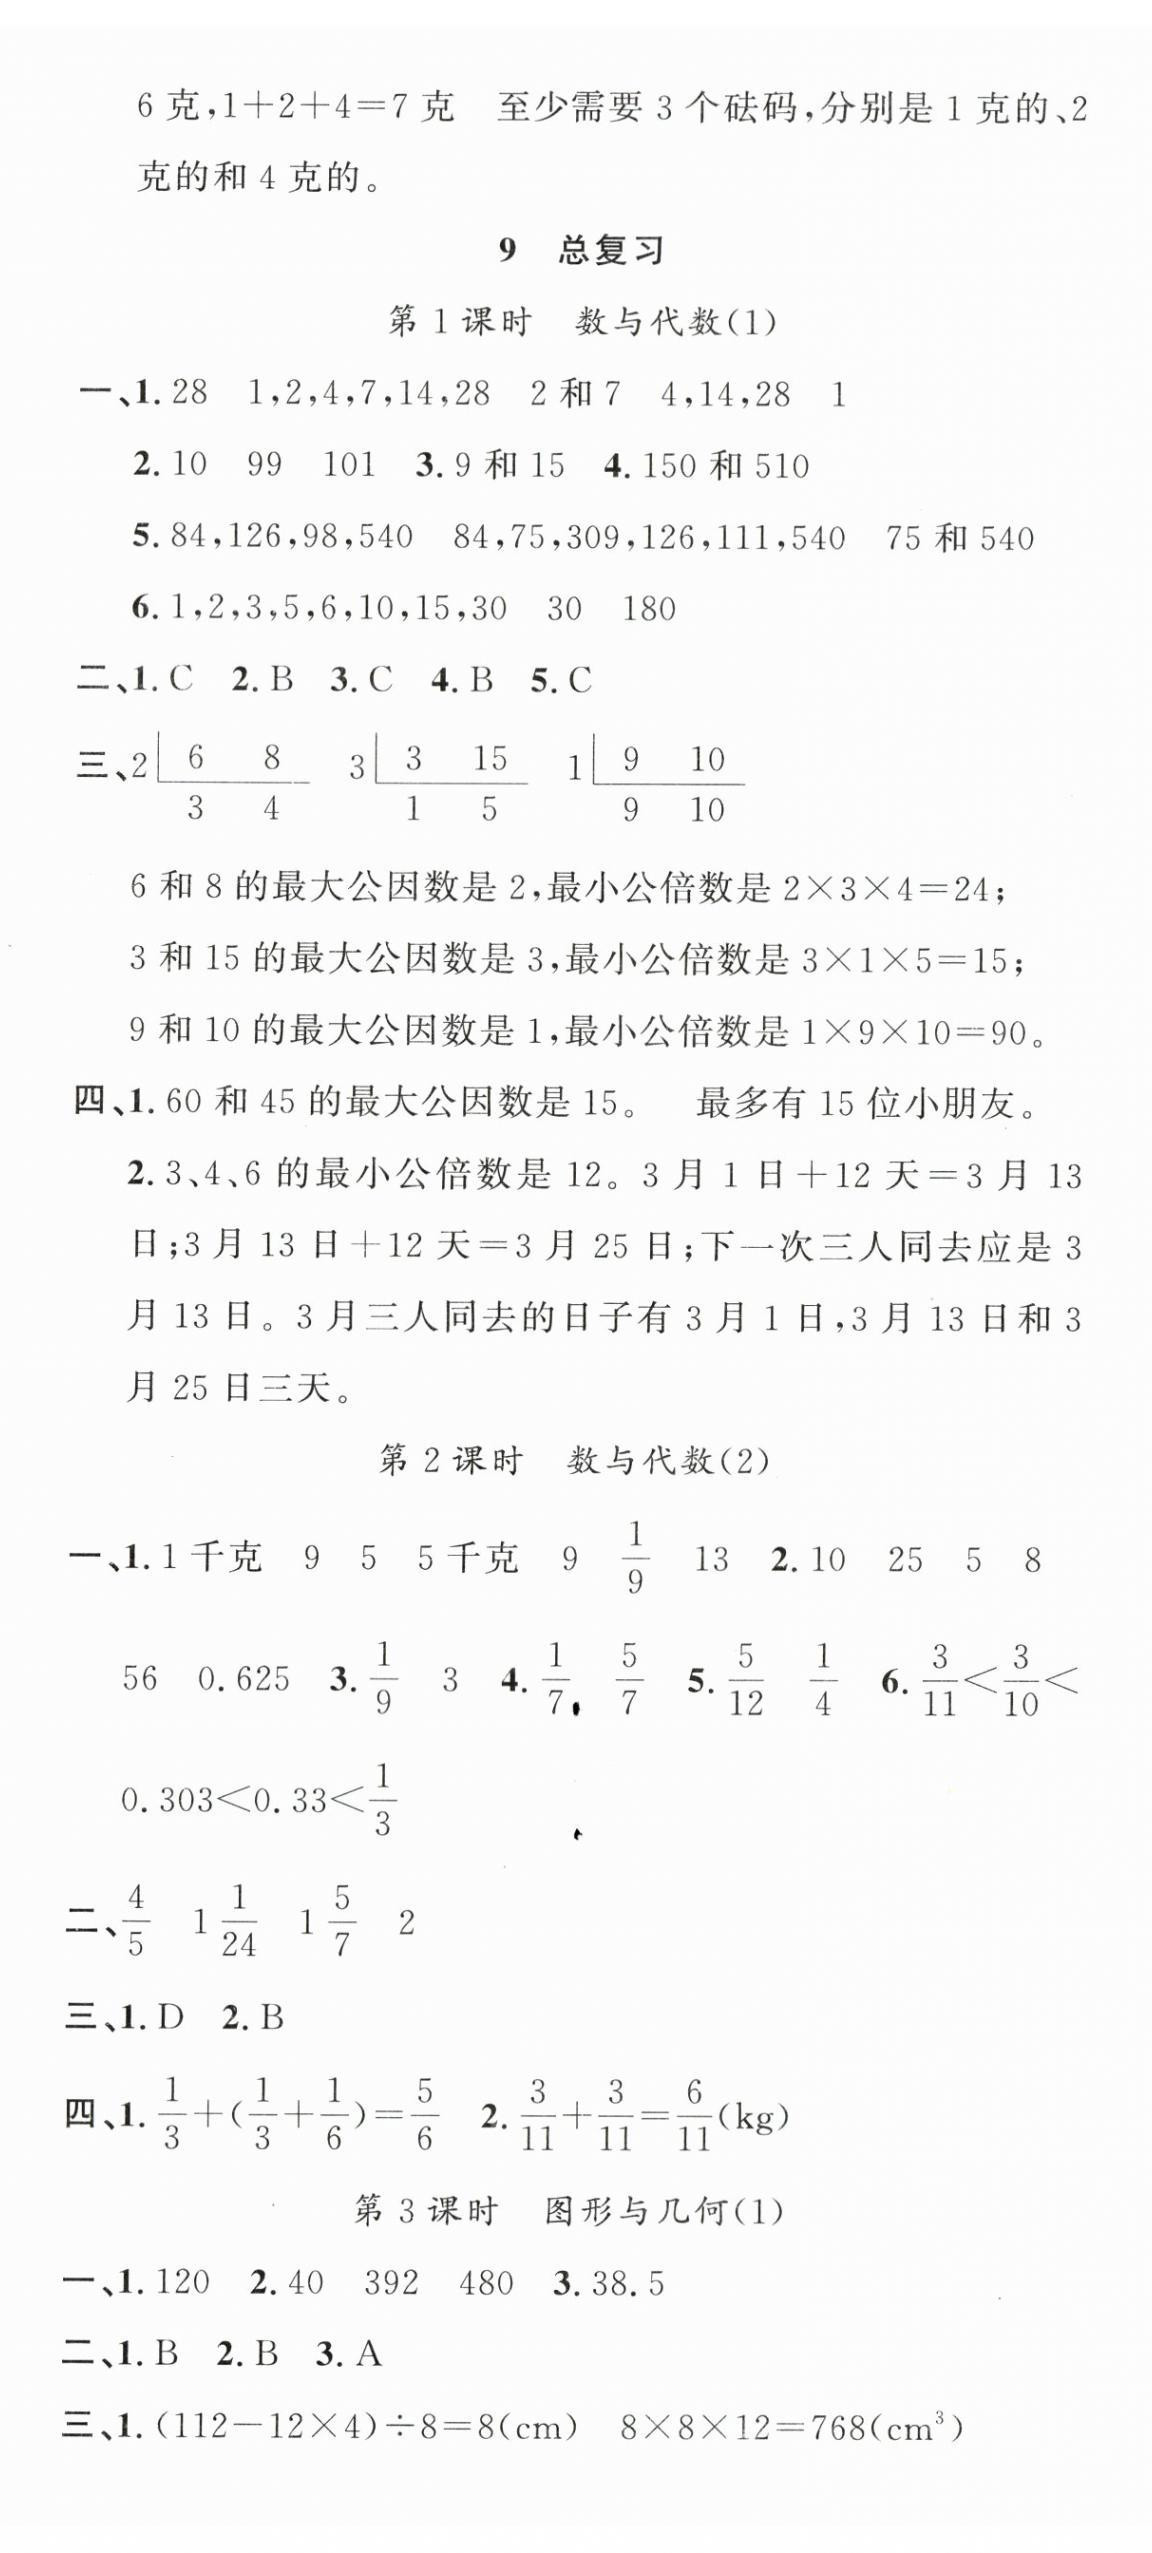 6 克,1+2+4=7 克　至少需要 3 个砝码,分别是 1 克的、2
克的和 4 克的。
9　总复习
第 1 课时　数与代数(1)
一、1. 28　1,2,4,7,14,28　2 和 7　4,14,28　1
2. 10　99　101　3. 9 和 15　4. 150 和 510
5. 84,126,98,540　84,75,309,126,111,540　75 和 540
6. 1,2,3,5,6,10,15,30　30　180
二、1. C　2. B　3. C　4. B　5. C
三、2 6 8　3 3 15　1 9 10
3 4　1 5　9 10
6 和 8 的最大公因数是 2,最小公倍数是 2×3×4=24;
3 和 15 的最大公因数是 3,最小公倍数是 3×1×5=15;
9 和 10 的最大公因数是 1,最小公倍数是 1×9×10=90。
四、1. 60 和 45 的最大公因数是 15。　最多有 15 位小朋友。
2. 3、4、6 的最小公倍数是 12。3 月 1 日+12 天=3 月 13
日;3 月 13 日+12 天=3 月 25 日;下一次三人同去应是 3
月 13 日。3 月三人同去的日子有 3 月 1 日,3 月 13 日和 3
月 25 日三天。
第 2 课时　数与代数(2)
一、1. 1 千克　9　5　5 千克　9　1/9　13　2. 10　25　5　8
56　0.625　3. 1/9　3　4. 1/7　5/7　5. 5/12　1/4　6. 3/11<3/10<
0.303<0.33<1/3
二、4/5　1 1/24　1 5/7　2
三、1. D　2. B
四、1. 1/3+(1/3+1/6)=5/6　2. 3/11+3/11=6/11(kg)
第 3 课时　图形与几何(1)
一、1. 120　2. 40　392　480　3. 38.5
二、1. B　2. B　3. A
三、1. (112-12×4)÷8=8(cm)　8×8×12=768(cm³)